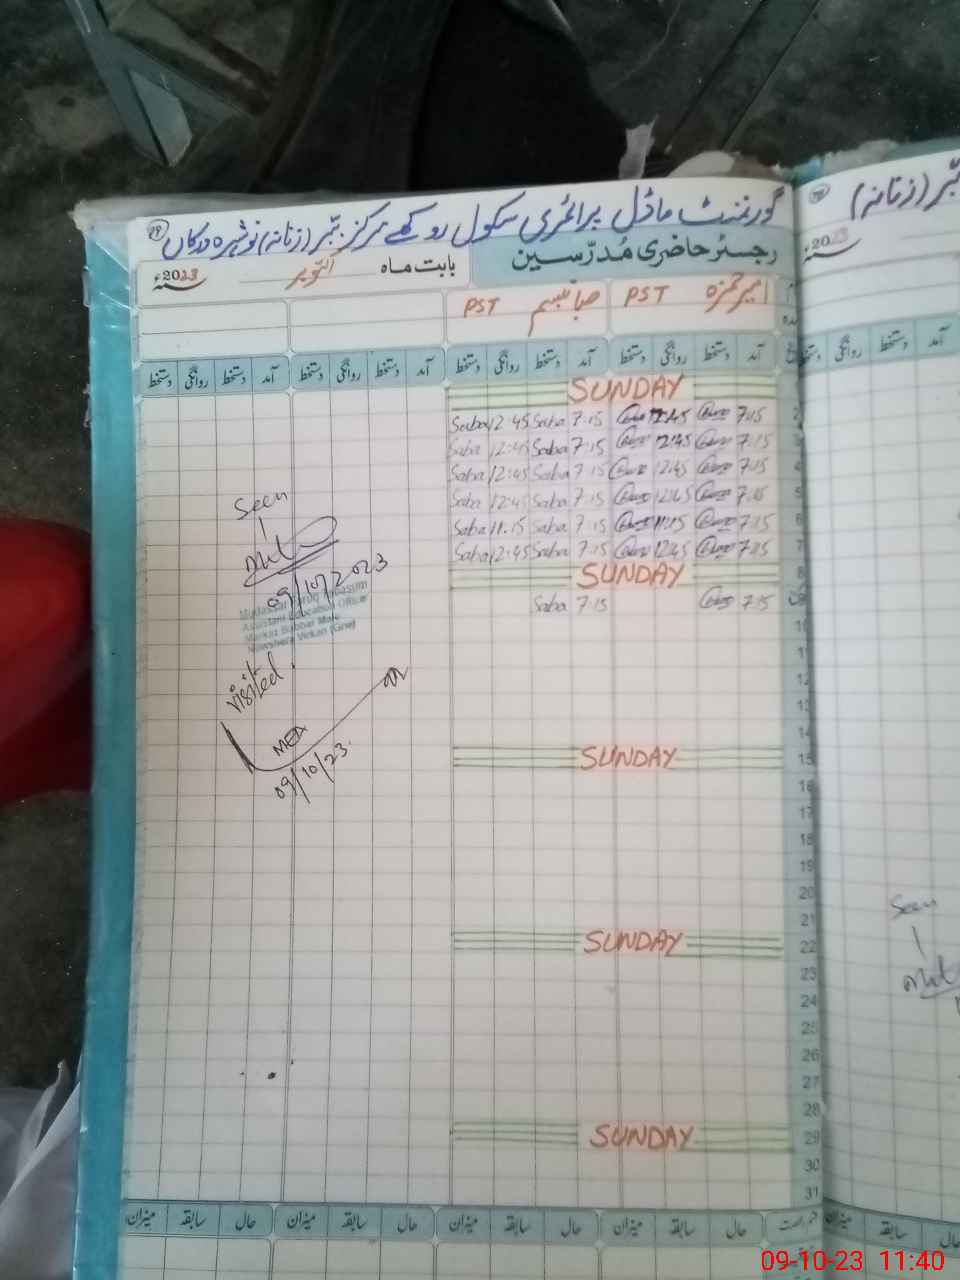 گورنمنٹ ماڈل پرائمری سکول روکھے مرکز ببر (زنانہ) نوشہرہ ورکاں
رجسٹر حاضری مُدرّسین
بابت ماہ اکتوبر 2023ء
امیر حمزہ PST صبا تبسم PST
آمد دستخط روانگی دستخط آمد دستخط روانگی دستخط آمد دستخط روانگی دستخط آمد دستخط روانگی دستخط
SUNDAY
2 7:15 12:45 7:15 Saba 12:45 Saba
3 7:15 12:45 7:15 Saba 12:45 Saba
4 7:15 12:45 7:15 Saba 12:45 Saba
5 7:15 12:45 7:15 Saba 12:45 Saba
6 7:15 11:15 7:15 Saba 11:15 Saba
7 7:15 12:45 7:15 Saba 12:45 Saba
8 SUNDAY
7:15 7:15 Saba
10
11
12
13
14
15 SUNDAY
16
17
18
19
20
21
22 SUNDAY
23
24
25
26
27
28
29 SUNDAY
30
31
حال سابقہ میزان حال سابقہ میزان حال سابقہ میزان حال سابقہ میزان
Seen
09/10/2023
Assistant Education Officer
Markaz Babbar Male
Nowshera Virkan (Grw)
Visited.
MEA
09/10/23.
ببر (زنانہ)
2023ء
آمد دستخط روانگی دستخط
Seen
حال سابقہ میزان
09-10-23 11:40